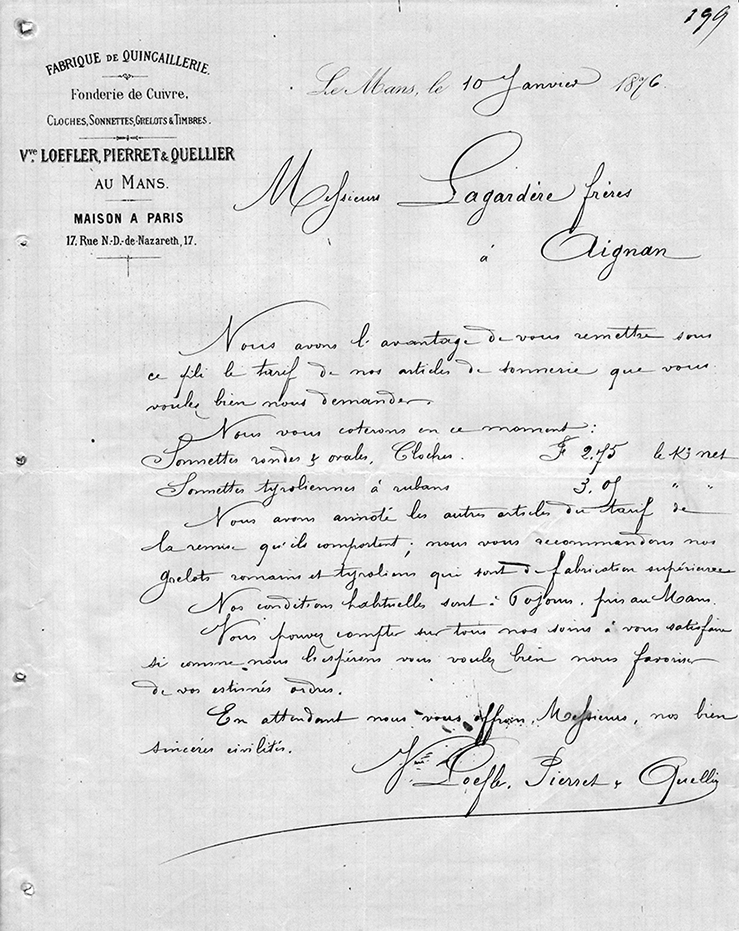 199
FABRIQUE DE QUINCAILLERIE.
Fonderie de Cuivre,
CLOCHES, SONNETTES, GRELOTS & TIMBRES.
Vve LOEFLER, PIERRET & QUELLIER
AU MANS.
MAISON A PARIS
17. Rue N.-D.-de-Nazareth, 17.
Le Mans, le 10 Janvier 1876.
Messieurs Lagardère frères
à Aignan
Nous avons l'avantage de vous remettre sous
ce pli le tarif de nos articles de sonnerie que vous
voulez bien nous demander.
Nous vous coterons en ce moment :
Sonnettes rondes & ovales, Cloches. F 2.75 le Ko net
Sonnettes tyroliennes à rubans 3.05 " "
Nous avons annoté les autres articles du tarif de
la remise qu'ils comportent ; nous vous recommandons nos
grelots romains et tyroliens qui sont de fabrication supérieure
Nos conditions habituelles sont à jours, pris au Mans.
Vous pouvez compter sur tous nos soins à vous satisfaire
si comme nous l'espérons vous voulez bien nous favoriser
de vos estimés ordres.
En attendant nous vous offrons, Messieurs, nos bien
sincères civilités.
Vve Loefler, Pierret & Quellier